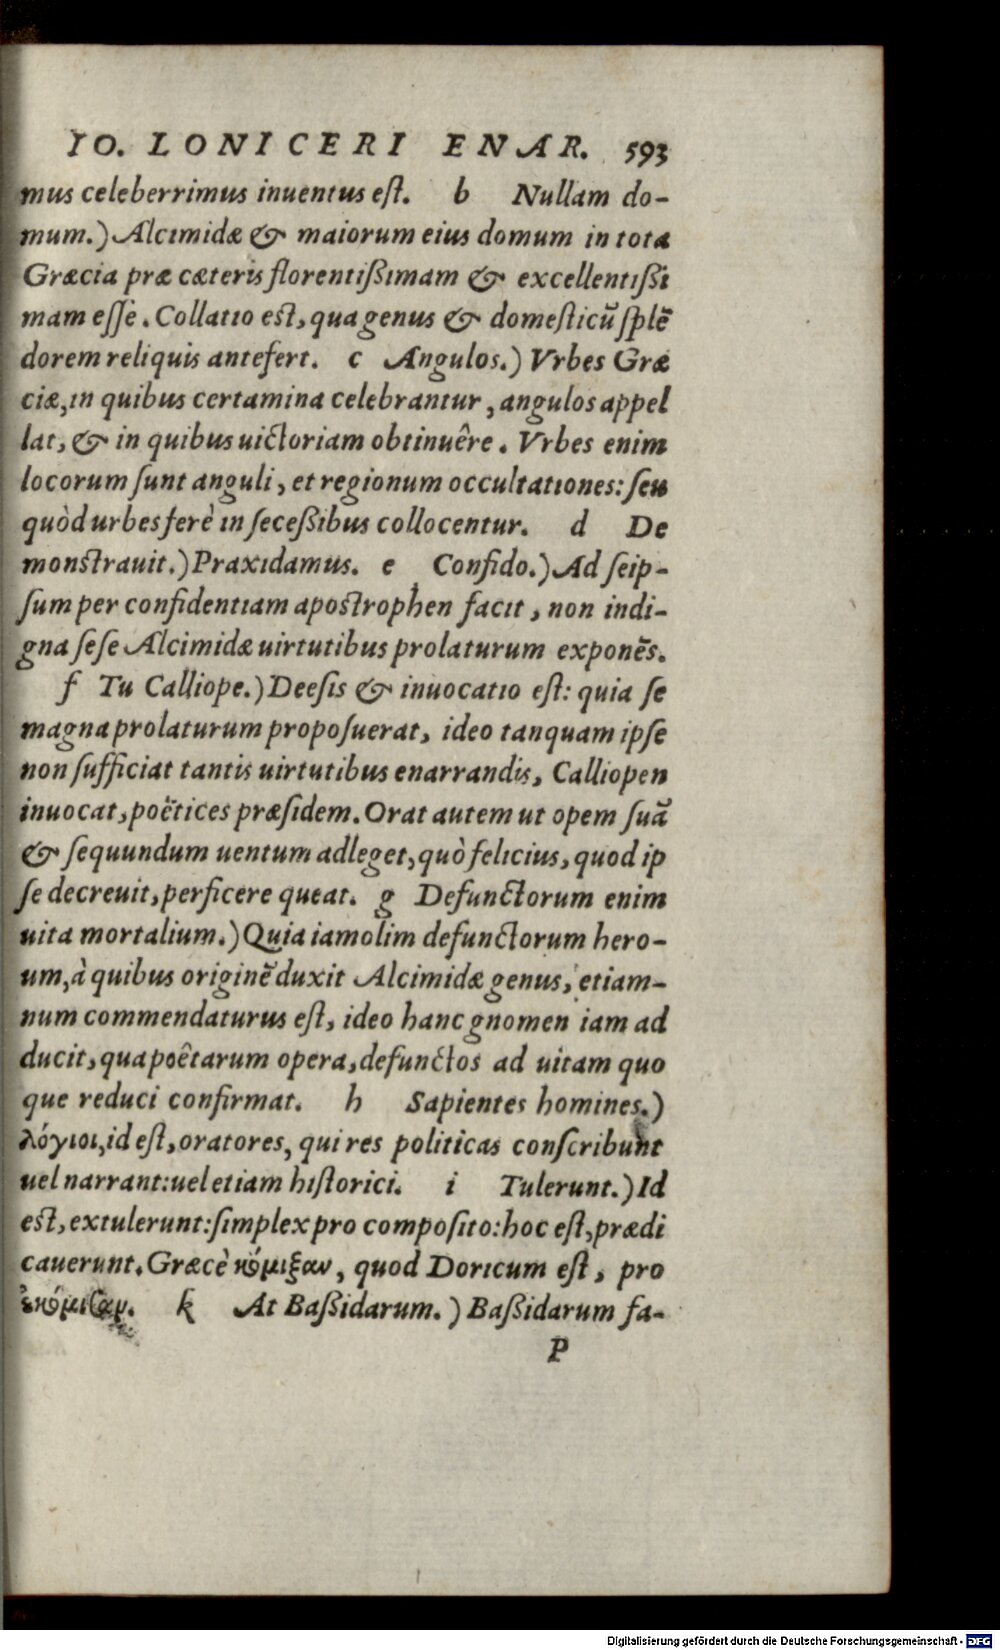 IO. LONICERI ENAR. 593
mus celeberrimus inuentus eſt. b Nullam do-
mum.) Alcimidæ & maiorum eius domum in tota
Græcia præ cæteris florentißimam & excellentißi
mam eſſe. Collatio est, qua genus & domeſticũ ſplẽ
dorem reliquis antefert. c Angulos.) Vrbes Græ
ciæ, in quibus certamina celebrantur, angulos appel
lat, & in quibus uictoriam obtinuêre. Vrbes enim
locorum ſunt anguli, et regionum occultationes: ſeu
quòd urbes ferè in ſeceßibus collocentur. d De
monstrauit.) Praxidamus. e Confido.) Ad ſeip-
ſum per confidentiam apostrophen facit, non indi-
gna ſeſe Alcimidæ uirtutibus prolaturum exponẽs.
f Tu Calliope.) Deeſis & inuocatio eſt: quia ſe
magna prolaturum propoſuerat, ideo tanquam ipſe
non ſufficiat tantis uirtutibus enarrandis, Calliopen
inuocat, poëtices præſidem. Orat autem ut opem ſuã
& ſequundum uentum adleget, quò felicius, quod ip
ſe decreuit, perficere queat. g Defunctorum enim
uita mortalium.) Quia iamolim defunctorum hero-
um, à quibus originẽ duxit Alcimidæ genus, etiam-
num commendaturus eſt, ideo hanc gnomen iam ad
ducit, qua poêtarum opera, defunctos ad uitam quo
que reduci confirmat. h Sapientes homines.)
λόγιοι, id eſt, oratores, qui res politicas conſcribunt
uel narrant: uel etiam hiſtorici. i Tulerunt.) Id
est, extulerunt: ſimplex pro compoſito: hoc eſt, prædi
cauerunt. Græcè κόμιξαν, quod Doricum eſt, pro
ἐκόμισαν. k At Baßidarum.) Baßidarum fa-
P
Digitalisierung gefördert durch die Deutsche Forschungsgemeinschaft - DFG